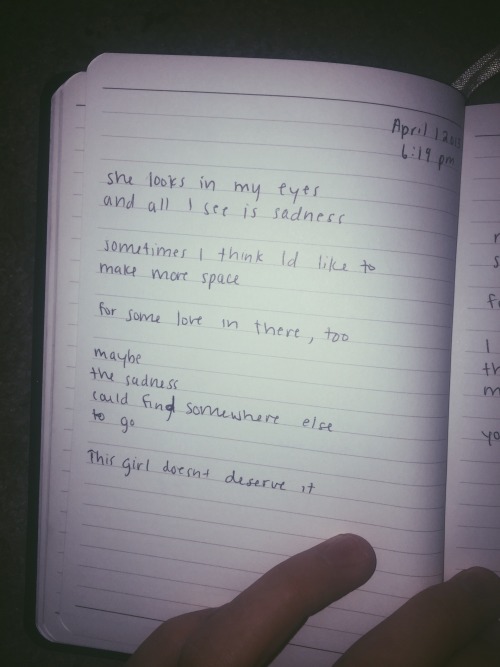 April 1
6:19 pm
she looks in my eyes
and all I see is sadness
sometimes I think Id like to
make more space
for some love in there, too
maybe
the sadness
could find somewhere else
to go
This girl doesnt deserve it